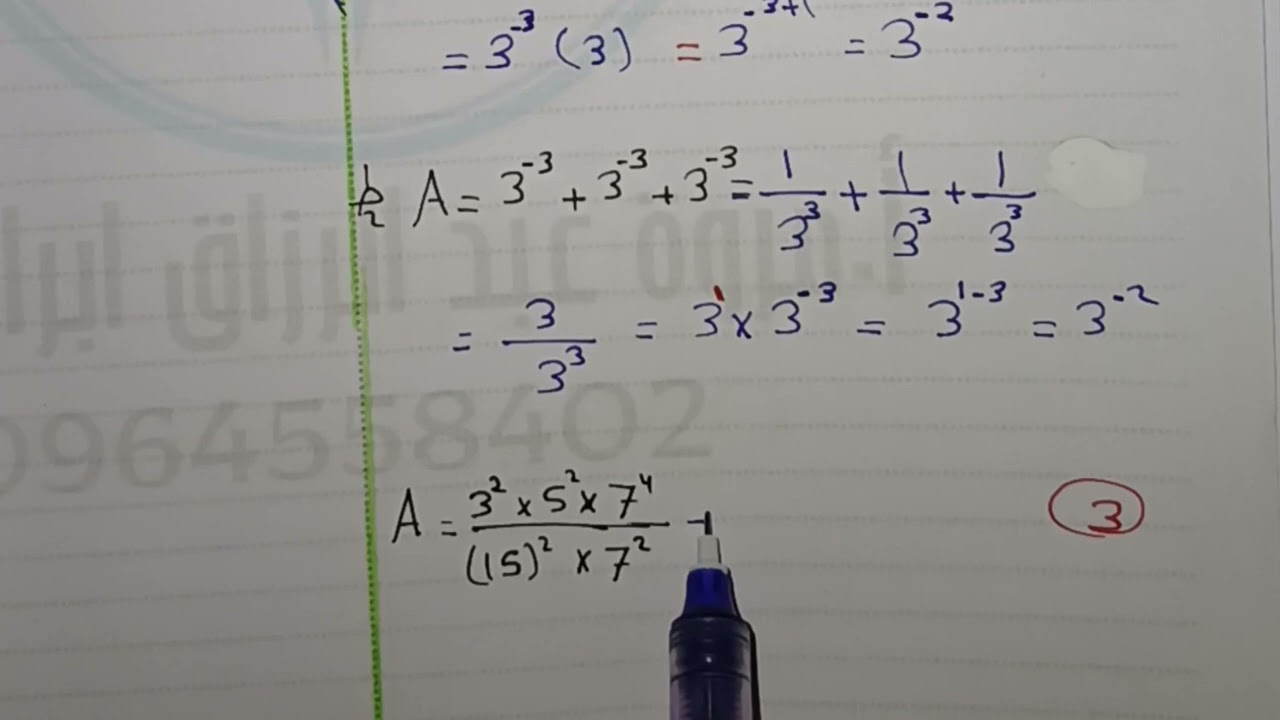 = 3⁻³ (3) = 3⁻³⁺¹ = 3⁻²
A = 3⁻³ + 3⁻³ + 3⁻³ = 1/3³ + 1/3³ + 1/3³
= 3/3³ = 3¹ × 3⁻³ = 3¹⁻³ = 3⁻²
A = 3² × 5² × 7⁴ / (15)² × 7² -1
3
أ. مروة عبد الرزاق
0964558402